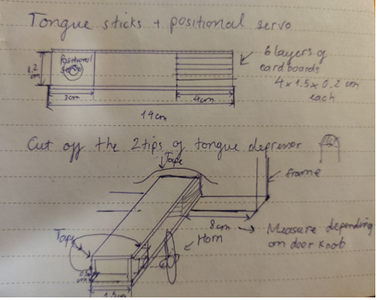 Tongue sticks + positional servo
Positional
Servo
6 layers of
cardboards
4 x 1.5 x 0.2 cm
each
3cm
4cm
14cm
Cut off the 2 tips of tongue depressor
Tape
frame
8cm
Tape
Horn
Measure depending
on door knob
1.5cm